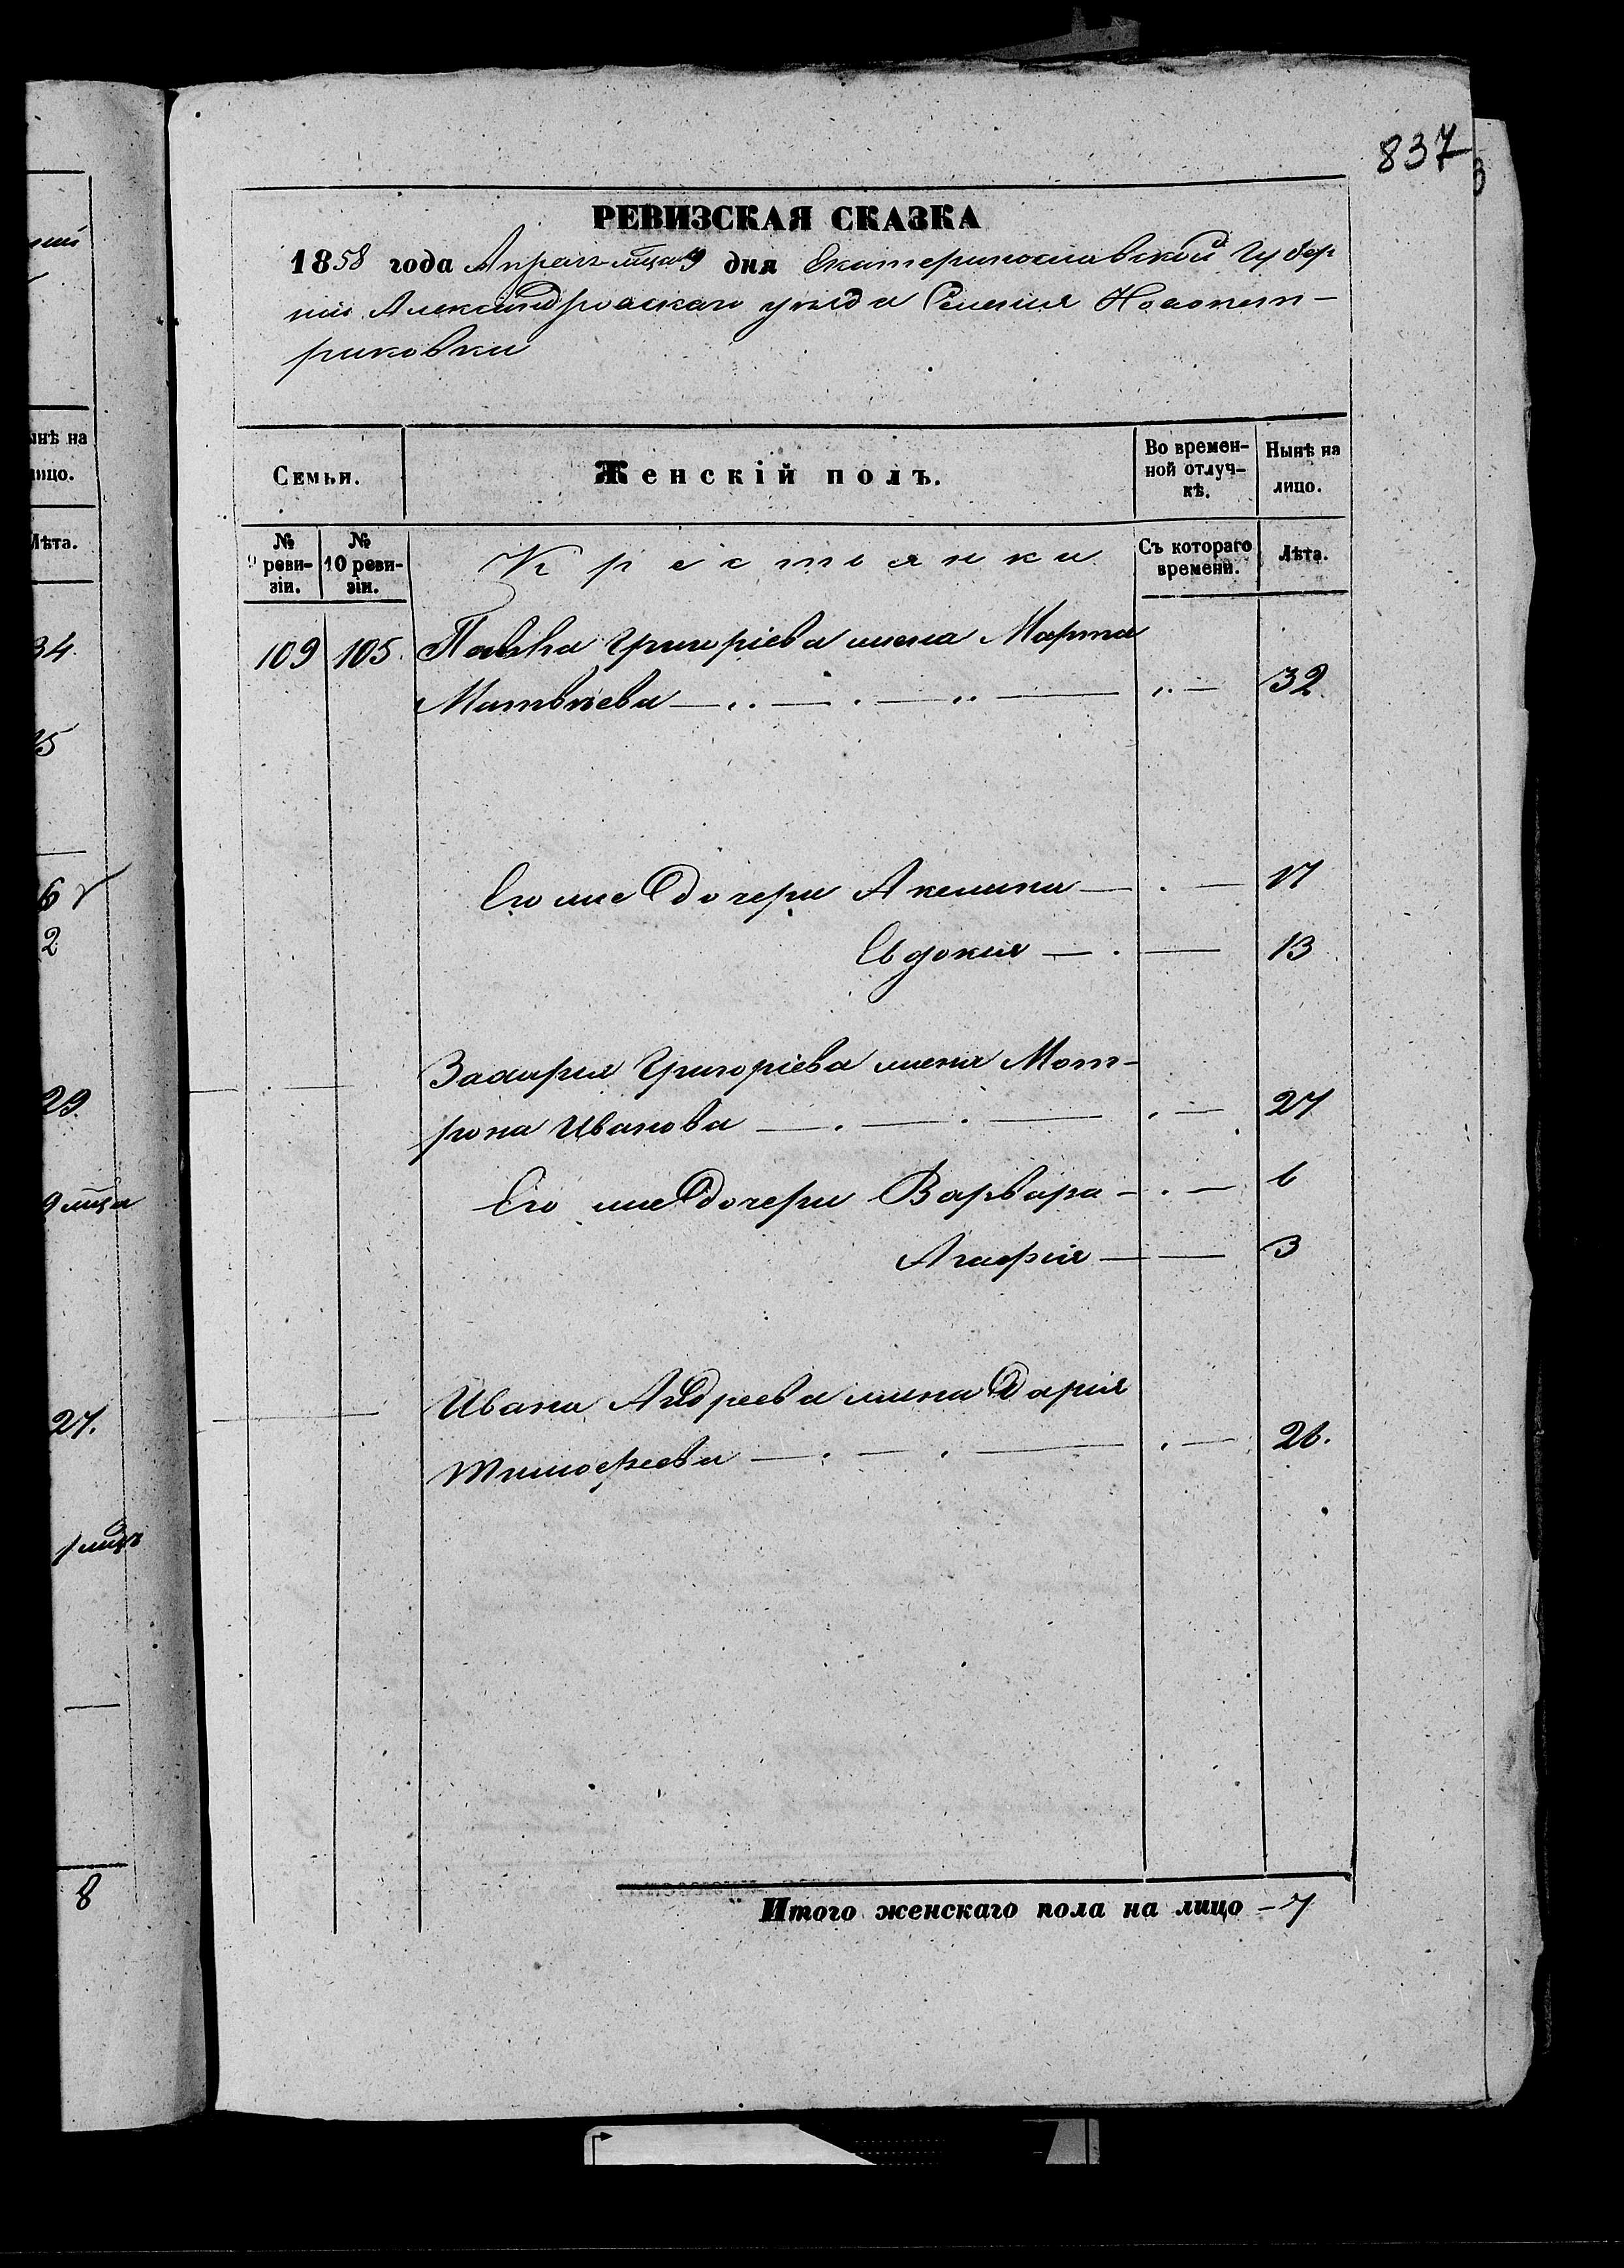 837
РЕВИЗСКАЯ СКАЗКА
1858 года Апреля мца 9 дня Екатеринославской Губер
ніи Александровскаго уѣзда Селенія Новопет-
риковки
Семьи.
Женскій полъ.
Во времен-
ной отлуч-
кѣ.
Нынѣ на
лицо.
№
9 реви-
зіи.
№
10 реви-
зіи.
Крестьянки
Съ котораго
времени.
Лѣта.
109 105. Павла Григоріева жена Марта
Матвѣева 32
Его же дочери Акелина 17
Евдокия 13
Захария Григоріева жена Мот-
рона Иванова 27
Его же дочери Варвара 6
Агафія 3
Ивана Андреева жена Дарія
Тимофеева 26.
Итого женскаго пола на лицо - 7
ынѣ на
лицо.
Лѣта.
34
15
6
2
29
9 мца
27.
8